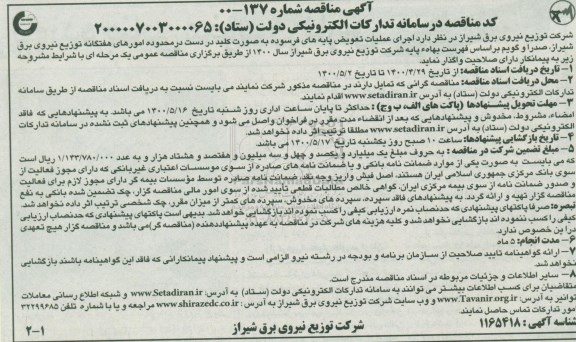 آگهی مناقصه شماره ۱۳۷-۰۰
کد مناقصه در سامانه تدارکات الکترونیکی دولت (ستاد): ۲۰۰۰۰۰۷۰۰۳۰۰۰۰۶۵
شرکت توزیع نیروی برق شیراز در نظر دارد اجرای عملیات تعویض پایه های فرسوده به صورت کلید در دست در محدوده امورهای هفتگانه توزیع نیروی برق
شیراز، صدرا و کویر براساس فهرست بهاء پایه شرکت توزیع نیروی برق شیراز سال ۱۴۰۰ از طریق برگزاری مناقصه عمومی یک مرحله ای با شرایط مشروحه
زیر به پیمانکار دارای صلاحیت واگذار نماید.
۱- تاریخ دریافت اسناد مناقصه: از تاریخ ۱۴۰۰/۴/۲۹ تا تاریخ ۱۴۰۰/۵/۲
۲- محل دریافت اسناد مناقصه: مناقصه گرانی که تمایل دارند در مناقصه مذکور شرکت نمایند می بایست نسبت به دریافت اسناد مناقصه از طریق سامانه
تدارکات الکترونیکی دولت (ستاد) به آدرس www.setadiran.ir اقدام نمایند.
۳- مهلت تحویل پیشنهادها (پاکت های الف، ب و ج): حداکثر تا پایان ساعت اداری روز شنبه تاریخ ۱۴۰۰/۵/۱۶ می باشد. به پیشنهادهایی که فاقد
امضاء، مشروط، مخدوش و پیشنهادهایی که بعد از انقضاء مدت مقرر در فراخوان واصل می شود و همچنین پیشنهادهای ثبت نشده در سامانه تدارکات
الکترونیکی دولت (ستاد) به آدرس www.setadiran.ir مطلقا ترتیب اثر داده نخواهد شد.
۴- تاریخ بازگشایی پیشنهادها: ساعت ۱۰ صبح روز یکشنبه تاریخ ۱۴۰۰/۵/۱۷ می باشد.
۵- مبلغ تضمین شرکت در مناقصه: به حروف مبلغ یک میلیارد و یکصد و چهل و سه میلیون و هفتصد و هشتاد هزار و به عدد ۱/۱۴۳/۷۸۰/۰۰۰ ریال است
که می بایست به صورت یکی از موارد ضمانت نامه بانکی و یا ضمانت نامه های صادره از سوی موسسات اعتباری غیربانکی که دارای مجوز فعالیت از
سوی بانک مرکزی جمهوری اسلامی ایران هستند، اصل فیش واریز وجه نقد، ضمانت نامه صادره توسط موسسات بیمه گر دارای مجوز لازم برای فعالیت
و صدور ضمانت نامه از سوی بیمه مرکزی ایران، گواهی خالص مطالبات قطعی تأیید شده از سوی امور مالی مناقصه گزار، چک تضمین شده بانکی به نفع
مناقصه گزار تهیه و ارائه گردد. به پیشنهادهای فاقد سپرده، سپرده های مخدوش، سپرده های کمتر از میزان مقرر، چک شخصی ترتیب اثر داده نخواهد شد.
تبصره: صرفا پاکتهای پیشنهادی که حدنصاب نمره ارزیابی کیفی را کسب نموده اند بازگشایی خواهد شد. بدیهی است پاکتهای پیشنهادی که حدنصاب ارزیابی
کیفی را کسب ننموده اند بازگشایی نخواهد شد و کلیه هزینه های شرکت در مناقصه به عهده پیشنهاددهنده (مناقصه گر) می باشد و مناقصه گزار هیچ تعهدی
در این خصوص ندارد.
۶- مدت انجام: ۵ ماه
۷- ارائه گواهینامه تایید صلاحیت از سازمان برنامه و بودجه در رشته نیرو الزامی است و پیشنهاد پیمانکارانی که فاقد این گواهینامه باشند بازگشایی
نخواهد شد.
۸- سایر اطلاعات و جزئیات مربوطه در اسناد مناقصه مندرج است.
متقاضیان برای کسب اطلاعات بیشتر می توانند به سامانه تدارکات الکترونیکی دولت (ستاد) به آدرس: www.Setadiran.ir و شبکه اطلاع رسانی معاملات
توانیر به آدرس: www.Tavanir.org.ir و وب سایت شرکت توزیع نیروی برق شیراز به آدرس: www.shirazedc.co.ir مراجعه و یا با شماره تلفن ۳۲۲۹۹۶۸۵
امور تدارکات تماس حاصل نمایند.
شناسه آگهی: ۱۱۶۵۴۱۸
شرکت توزیع نیروی برق شیراز
۲-۱